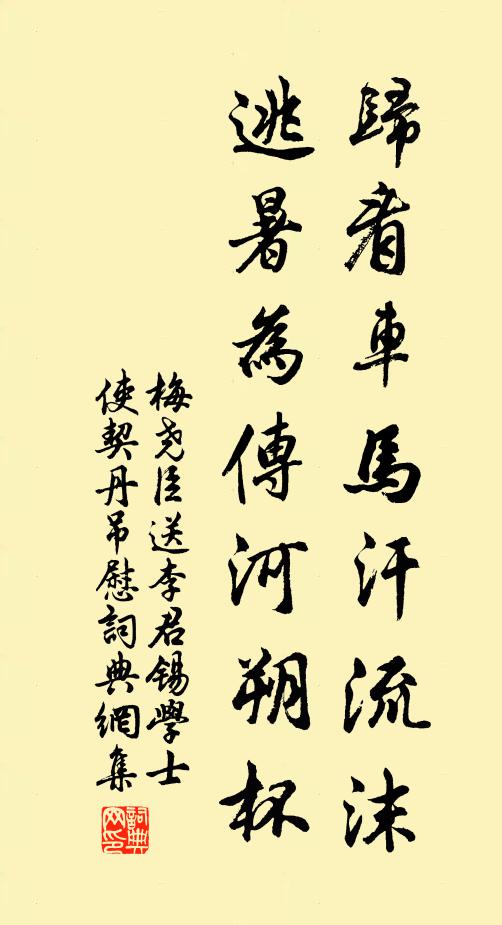 歸看車馬汗流沫
逃暑為傳河朔杯
梅堯臣送李君錫學士
使契丹弔慰詞典網集
詞典
网印